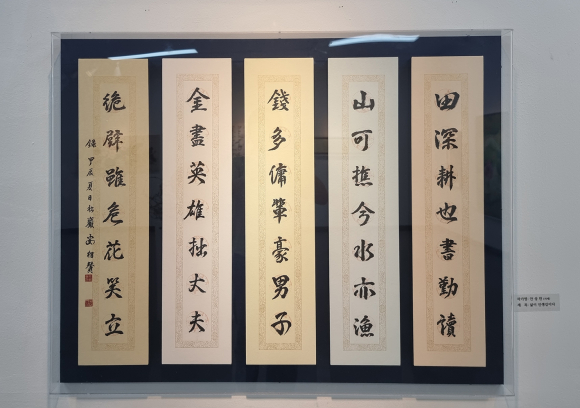 田深耕也書勤讀
山可樵今水亦漁
錢多傭輩豪男子
金盡英雄拙丈夫
絶壁雖危花笑立
甲辰夏日